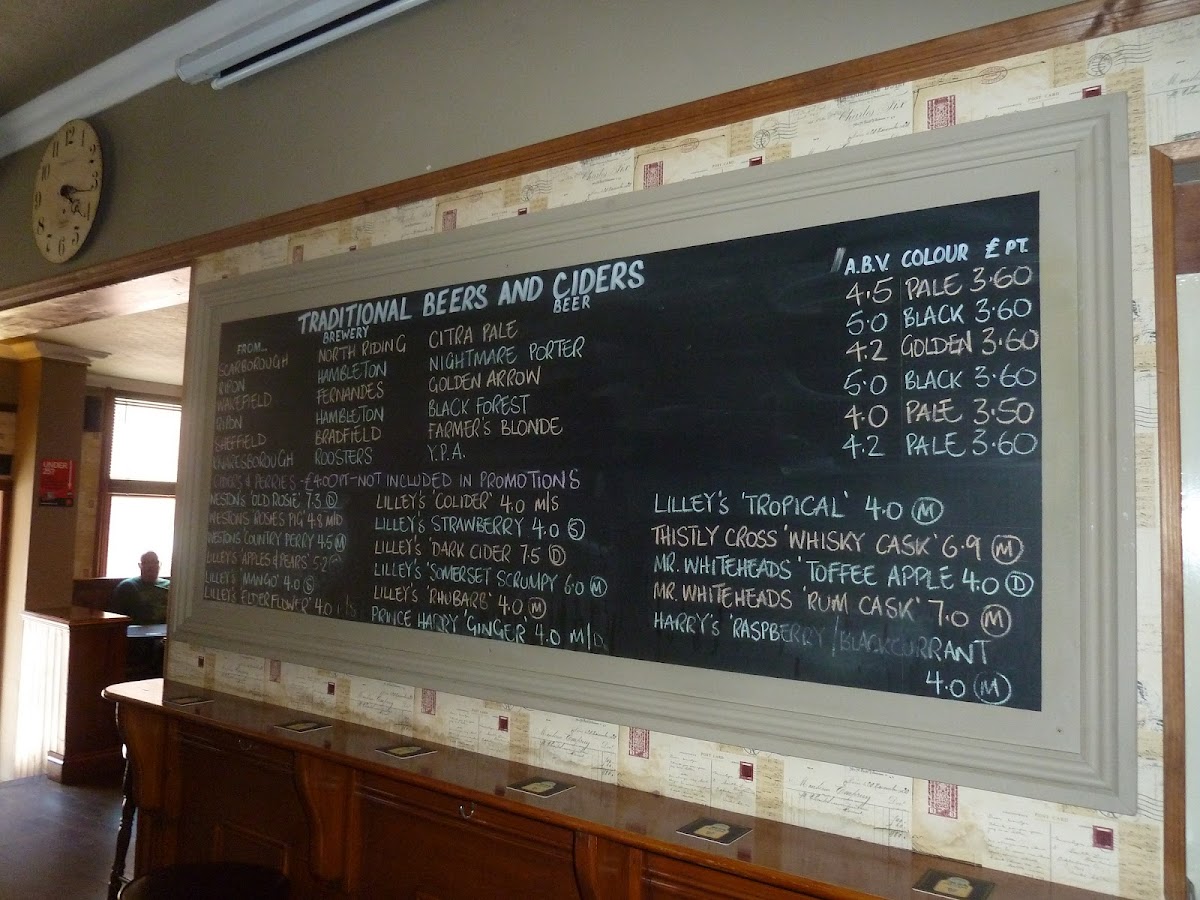 TRADITIONAL BEERS AND CIDERS
FROM... BREWERY BEER A.B.V COLOUR £ PT.
SCARBOROUGH NORTH RIDING CITRA PALE 4.5 PALE 3.60
RIPON HAMBLETON NIGHTMARE PORTER 5.0 BLACK 3.60
WAKEFIELD FERNANDES GOLDEN ARROW 4.2 GOLDEN 3.60
RIPON HAMBLETON BLACK FOREST 5.0 BLACK 3.60
SHEFFIELD BRADFIELD FARMER'S BLONDE 4.0 PALE 3.50
KNARESBOROUGH ROOSTERS Y.P.A. 4.2 PALE 3.60
CIDERS & PERRIES - £4.00PT - NOT INCLUDED IN PROMOTIONS
WESTONS 'OLD ROSIE' 7.3 D
WESTONS 'ROSIES PIG' 4.8 M/D
WESTONS COUNTRY PERRY 4.5 M
LILLEY'S 'APPLES & PEARS' 5.2
LILLEY'S 'MANGO' 4.0 S
LILLEY'S 'ELDERFLOWER' 4.0
LILLEY'S 'COLIDER' 4.0 M/S
LILLEY'S STRAWBERRY 4.0 S
LILLEY'S 'DARK CIDER' 7.5 D
LILLEY'S 'SOMERSET SCRUMPY 6.0 M
LILLEY'S 'RHUBARB' 4.0 M
PRINCE HARRY 'GINGER' 4.0 M/D
LILLEY'S 'TROPICAL' 4.0 M
THISTLY CROSS 'WHISKY CASK' 6.9 M
MR. WHITEHEADS 'TOFFEE APPLE 4.0 D
MR. WHITEHEADS 'RUM CASK' 7.0 M
HARRY'S 'RASPBERRY/BLACKCURRANT
4.0 M
UNDER
25?
12 1 2 3 4 5 6 7 8 9 10 11
POST CARD